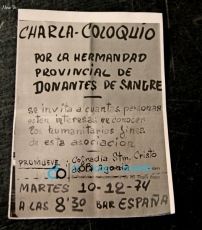 CHARLA-COLOQUIO
POR LA HERMANDAD
PROVINCIAL DE
DONANTES DE SANGRE
se invita a cuantas personas
estén interesadas en conocer
los humanitarios fines
de esta asociación
PROMUEVE: Cofradía Stm. Cristo
de la Agonía
MARTES 10-12-74
A LAS 8'30 BAR ESPAÑA